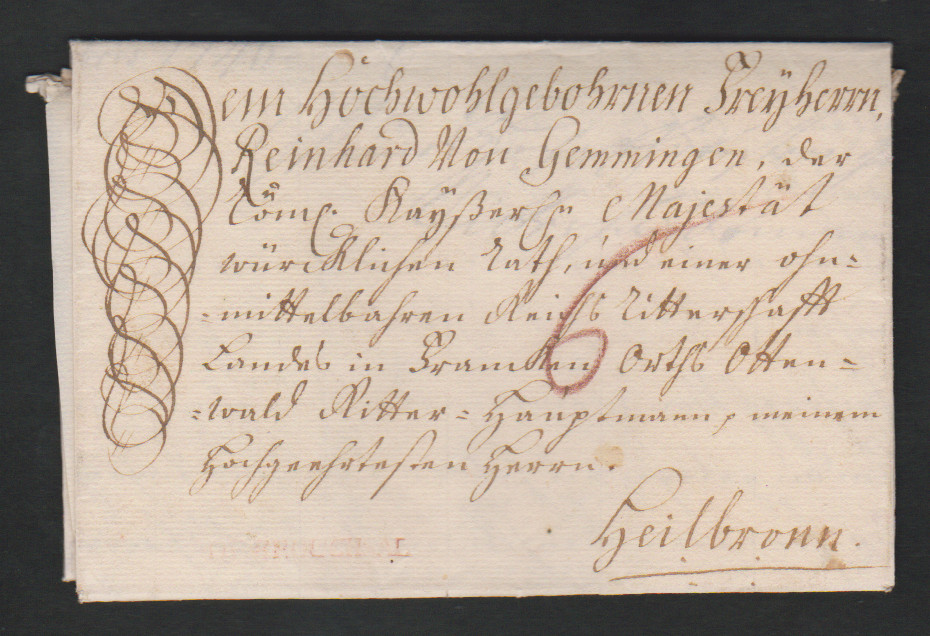 Dem Hochwohlgebohrnen Freyherrn,
Reinhard Von Gemmingen, der
Röm. Kayßerln Majestät
würcklichen Rath, und einer ohn=
=mittelbahren Reichs Ritterschafft
Landes in Francken Orths Otten=
=wald Ritter= Hauptmann, meinem
Hochgeehrtesten Herrn.
6
Heilbronn.